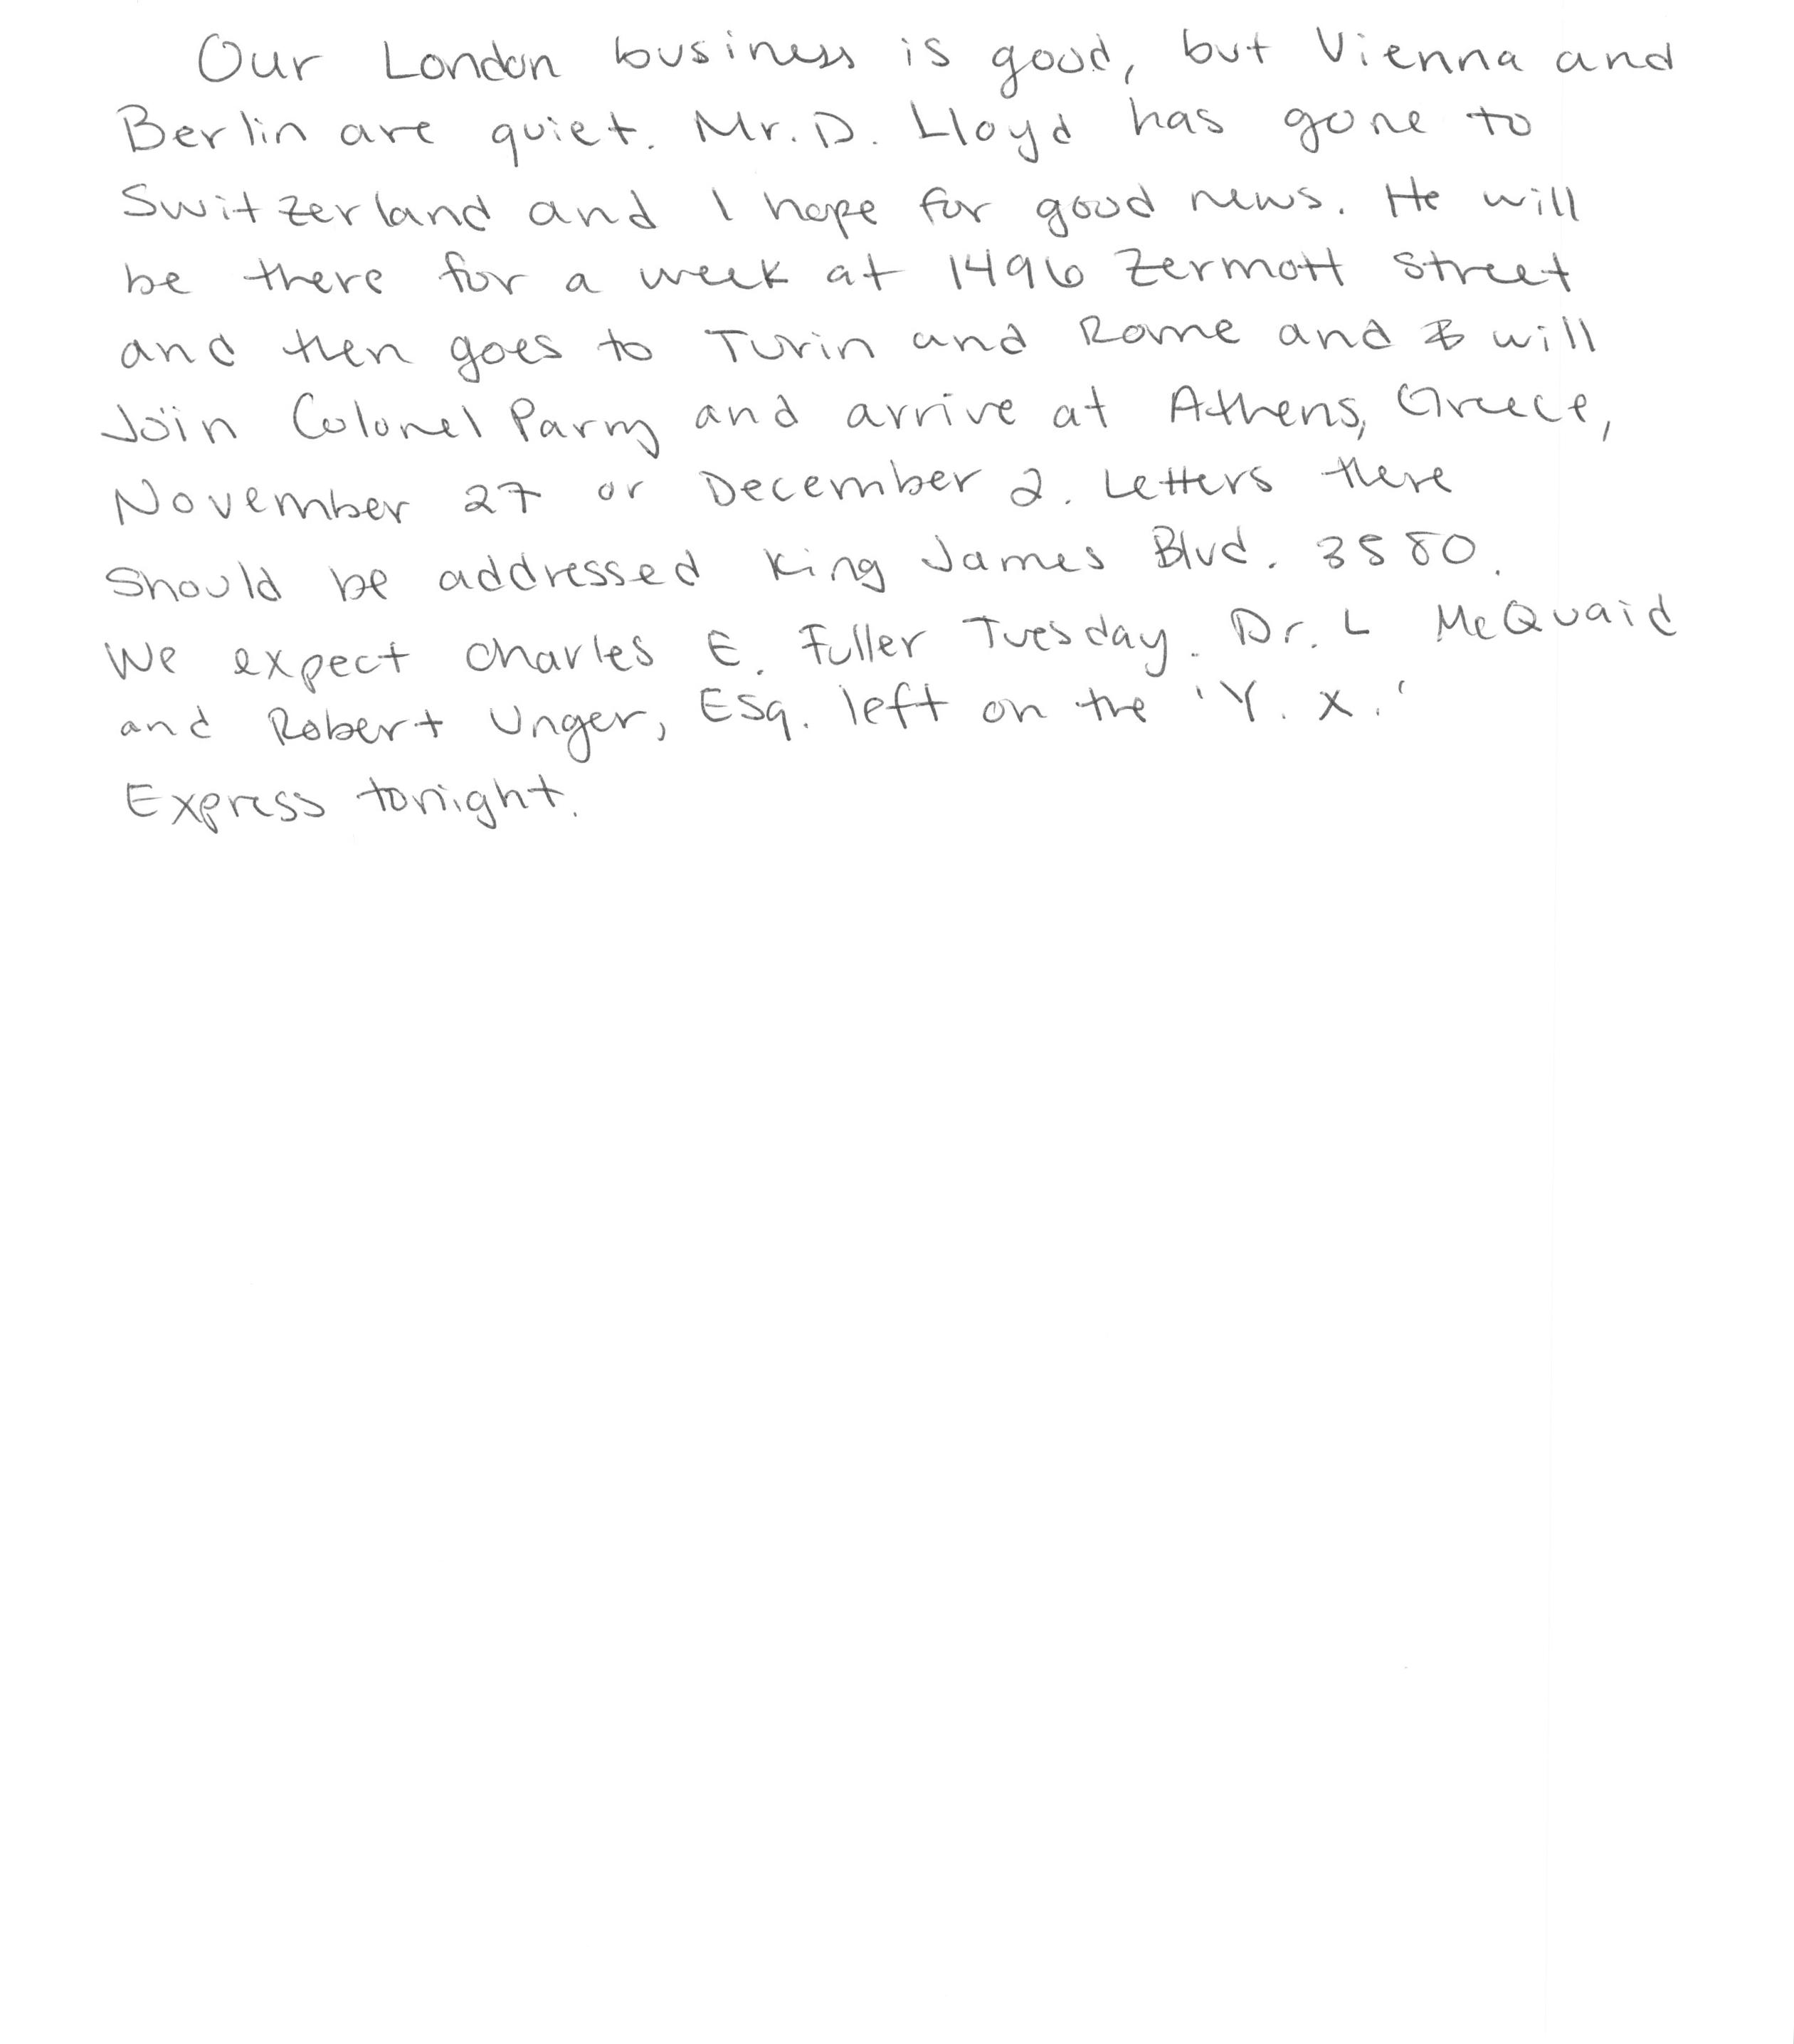 Our London business is good, but Vienna and
Berlin are quiet. Mr. D. Lloyd has gone to
Switzerland and I hope for good news. He will
be there for a week at 1496 Zermott Street
and then goes to Turin and Rome and will
Join Colonel Parry and arrive at Athens, Greece,
November 27 or December 2. Letters there
Should be addressed King James Blvd. 3580.
We expect Charles E. Fuller Tuesday. Dr. L McQuaid
and Robert Unger, Esq. left on the 'Y. X.'
Express tonight.